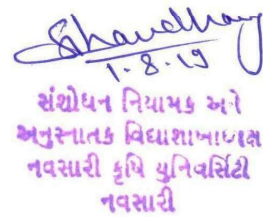 1.8.19
સંશોધન નિયામક અને
અનુસ્નાતક વિદ્યાશાખાધ્યક્ષ
નવસારી કૃષિ યુનિવર્સિટી
નવસારી